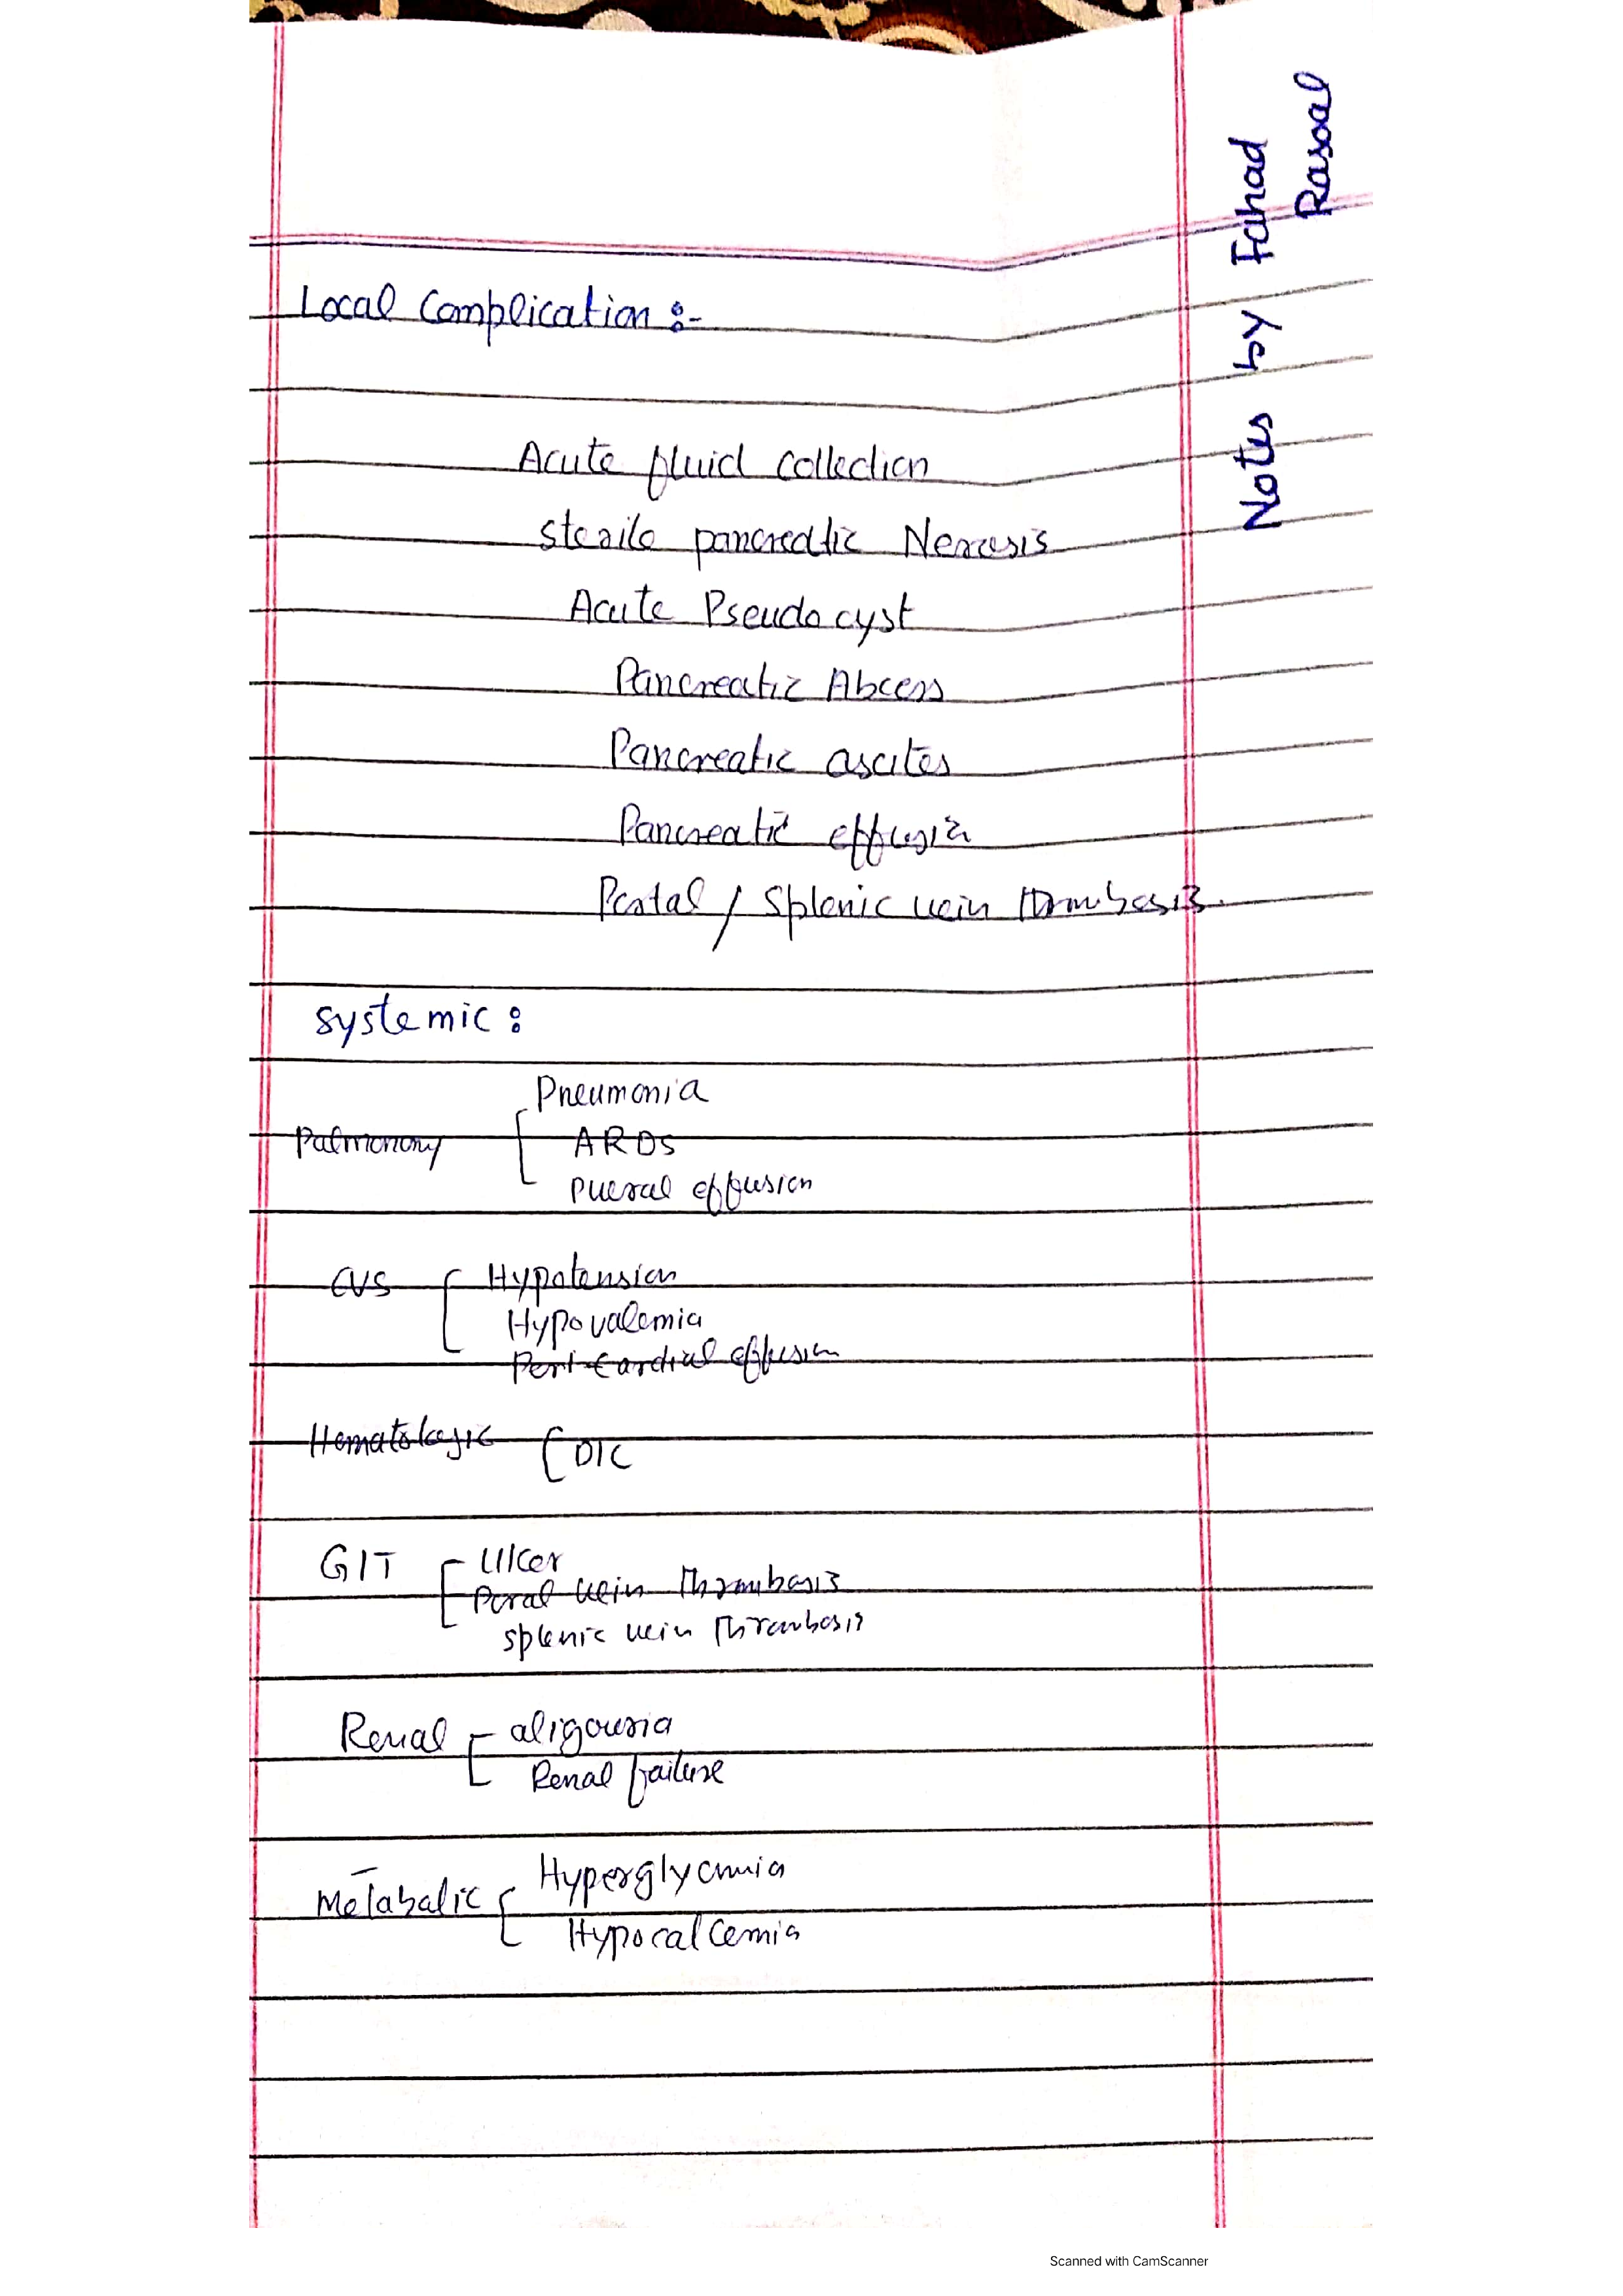 Notes by Fahad
Rasool
Local Complication :-
Acute fluid collection
sterile pancreatic Necrosis
Acute Pseudocyst
Pancreatic Abcess
Pancreatic ascites
Pancreatic effusion
Portal / Splenic vein thrombosis.
Systemic :
Pneumonia
Pulmonory
ARDS
Plueral effusion
CVS Hypotension
Hypovolemia
Pericardial effusion
Hematologic DIC
GIT Ulcer
Poral vein thrombosis
splenic vein thrombosis
Renal oligouria
Renal failure
Metabolic Hyperglycemia
Hypocalcemia
Scanned with CamScanner